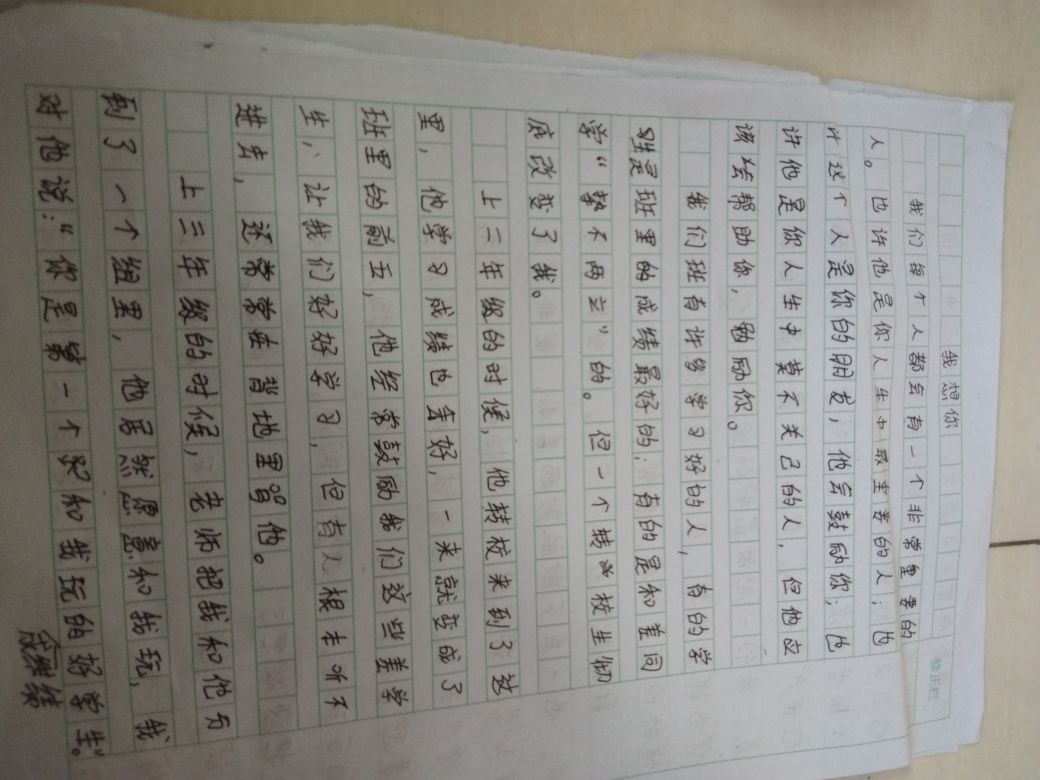 我想你
我们每个人都会有一个非常重要的
人。也许他是你人生中最重要的人;也
许这个人是你的朋友,他会鼓励你;也
许他是你人生中莫不关己的人,但他应
该会帮助你,勉励你。
我们班有许多学习好的人,有的学
是班里的成绩最好的;有的是和差同
学“势不两立”的。但一个转校生彻
底改变了我。
上二年级的时候,他转校来到了这
里,他学习成绩也幸好,一来就变成了
班里的前五,他经常鼓励我们这些差学
生,让我们好好学习,但有人根本听不
进去,还常常在背地里骂他。
上三年级的时候,老师把我和他分
到了一个组里,他居然愿意和我玩,我
对他说:“你是第一个和我玩的好学生”。
成绩
修正栏